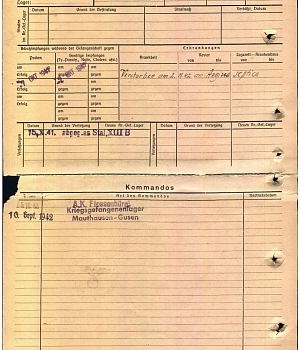 Lager:
Datum
Grund der Bestrafung
Strafmaß
Verbüßt, Datum
Schutzimpfungen während der Gefangenschaft gegen
Erkrankungen
Sonstige Impfungen
(Ty.-Paraty., Ruhr, Cholera usw.)
Krankheit
Revier
Lazarett — Krankenhaus
von
bis
von
bis
am
am
Erfolg
gegen
gegen
Verstorben am
Sepsis
am
am
Erfolg
gegen
gegen
am
am
Erfolg
gegen
gegen
Datum
Grund der Versetzung
Neues Kr.-Gef.-Lager
Datum
Grund der Versetzung
Neues Kr.-Gef.-Lager
15.X.41.
Stal. XIII B
Versetzungen
Kommandos
Datum
Art des Kommandos
Rückkehrdatum
10. Sept. 1942
Kriegsgefangenenlager
Mauthausen-Gusen